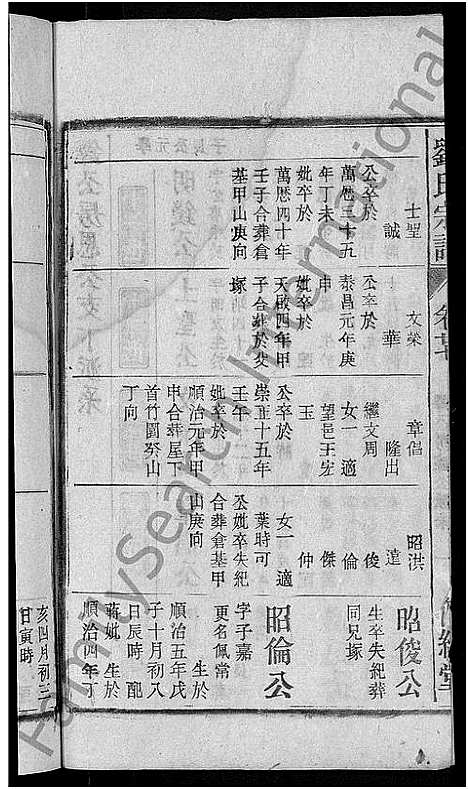 劉氏宗譜
士聖
誠
公卒於
萬曆三十五
年丁未
妣卒於
萬曆四十年
壬子合葬倉
基甲山庚向
文榮
華
公卒於
泰昌元年庚
申
妣卒於
天啟四年甲
子合妣於尖
塚
章倡
隆出
繼文周
女一適
望邑王宏
玉
公卒於
崇正十五年
壬午
妣卒於
順治元年甲
申合葬屋下
首竹園癸山
丁向
昭洪
達
俊
倫
傑
仲
女一適
葉時可
公妣卒失紀
合葬倉基甲
山庚向
昭俊公
生卒失紀葬
同兄塚
昭倫公
字子嘉
更名佩常
生於
順治五年戊
子十月初八
日辰時配
蔣妣生於
順治四年丁
亥四月初三
日寅時
FamilySearch International